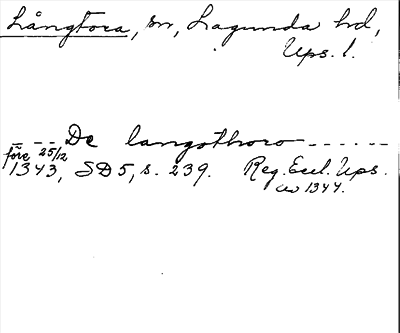 Långtora, sn, Lagunda hd,
Ups. l.
--- De langothoro ------
före 25/12
1343, SD5, s. 239. Reg. Eccl. Ups.
av 1344.